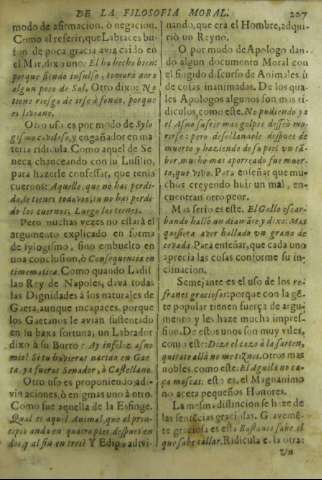 DE LA FILOSOFIA MORAL. 207
modo de afirmacion, ò negacion.
Como al referir, que Libraces bu-
fon de poca gracia avia caido en
el Mar, dixo uno: El ha hecho bien:
porque siendo insulso, tomarà aora
algun poco de Sal. Otro dixo: No
tiene riesgo de irse à fondo, porque
es liviano.
Otro uso es por modo de Sylo-
gismo cavidoso, y engañador en ma-
teria ridicula. Como aquel de Se-
neca chanceando con su Lusilio,
para hazerle confessar, que tenia
cuernos: Aquello, que no has perdi-
do, lo tienes todavia; tu no has perdi-
do los cuernos, Luego los tienes.
Pero muchas vezes no estarà el
argumento explicado en forma
de sylogismo, sino embuelto en
una conclusion, ò Consequencia en
timematica. Como quando Ladis-
lao Rey de Napoles, dava todas
las Dignidades à los naturales de
Gaeta, aunque incapaces, porque
los Gaetanos le avian sustentado
en su baxa fortuna; un Labrador
dixo à su Burro: Ay infeliz asno
mio! Si tu huvieras nacido en Gae-
ta, ya fueras Senador, ò Castellano.
Otro uso es proponiendo adi-
vinaciones, ò enigmas uno à otro.
Como fue aquella de la Esfinge.
Qual es aquel Animal, que al prin-
cipio anda en quatro pies, despues en
dos, y al fin en tres? Y Edipo adivi-
nando, que era el Hombre, adqui-
riò un Reyno.
O por modo de Apologo dan-
do algun documento Moral con
el fingido discurso de Animales ù
de cosas inanimadas. De los qua-
les Apologos algunos son mas ri-
diculos, como este. No pudiendo ya
el Asno sufrir mas golpes desseò mo-
rirse: pero desollandole despues de
muerto y haziendo de su piel un tã-
bor, mucho mas aporreado fue muer-
to, que vivo. Para enseñar que mu-
chos creyendo huir un mal, en-
cuentran otro peor.
Mas serio es este. El Gallo escar-
bando hallò un diamãte, y dixo: Mas
quisiera aver hallado un grano de
cevada. Para enseñar, que cada uno
aprecia las cosas conforme su in-
clinacion.
Semejante es el uso de los re-
franes graciosos: porque con la gẽ-
te popular tienen fuerça de argu-
mento y les haze mucha impres-
sion. De estos unos son muy viles,
como este: Dixo el cazo à la sarten,
quitate allà no me tiznes, otros mas
nobles como este. El Aguila no ca-
ça moscas: esto es, el Magnanimo
no aceta pequeños Honores.
La misma distincion se haze de
las sentencias graciosas. Gravemẽ-
te graciosa es esta: Bastante sabe el
que sabe callar. Ridicula es la otra:
Un